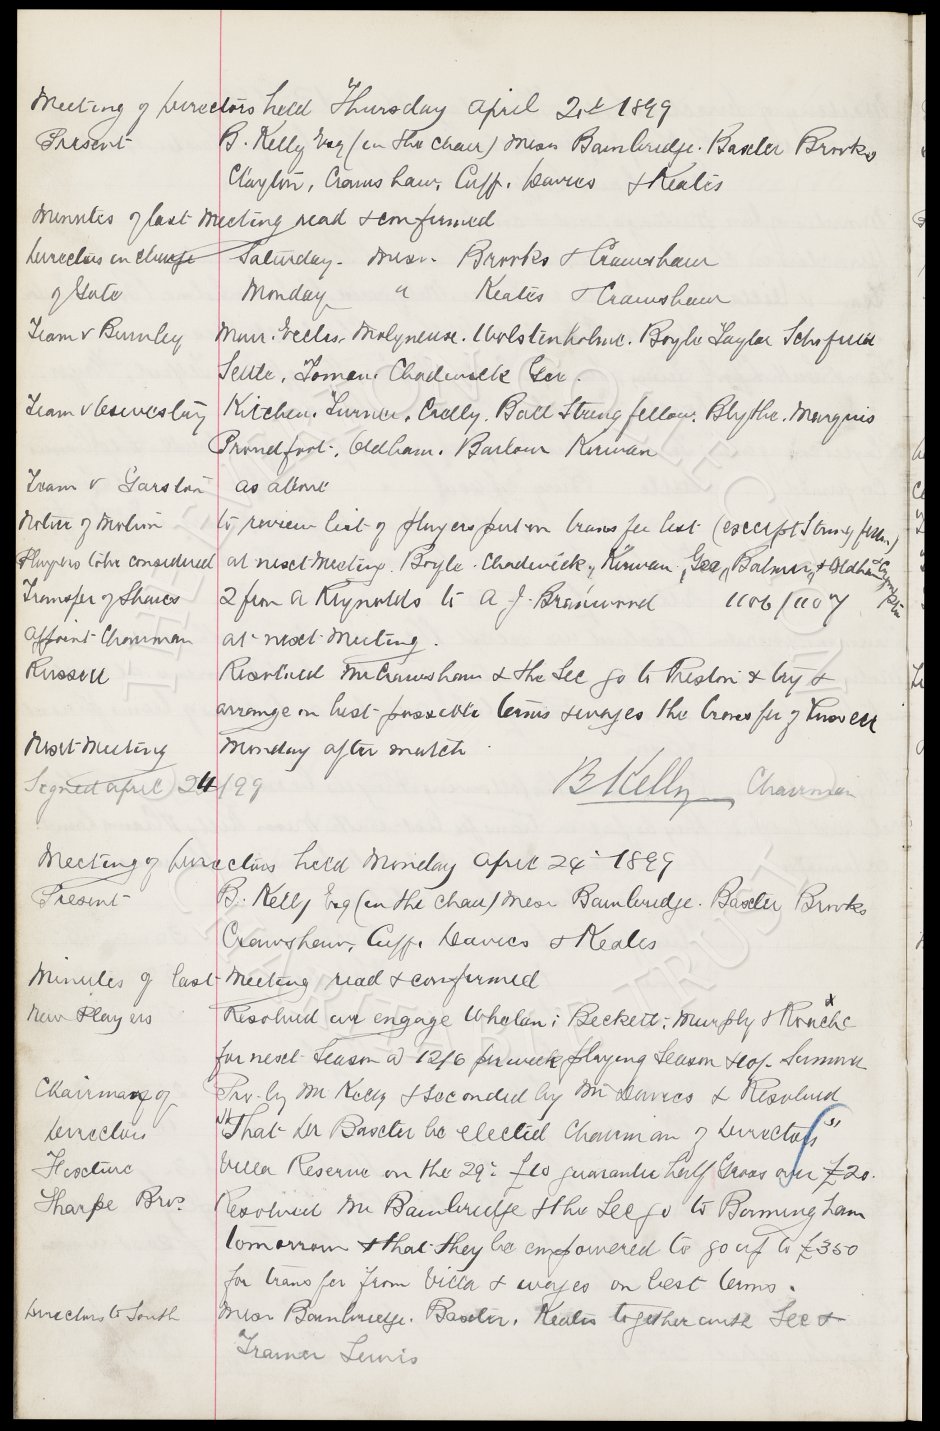 Meeting of Directors held Thursday April 21st 1899
Present B. Kelly Esq (in the Chair) Messrs Bainbridge. Baxter Brooks
Clayton, Crawshaw, Cuff, Davies & Keates
Minutes of last Meeting read & confirmed
Directors in charge Saturday. Messrs. Brooks & Crawshaw
of Gate Monday " Keates & Crawshaw
Team v Burnley Muir. Eccles. Molyneux. Wolstenholme. Boyle Taylor Schofield
Settle. Toman. Chadwick Gee.
Team v Oswestry Kitchen. Turner. Crelly. Ball Stringfellow. Blythe. Marquis
Proudfoot. Oldham. Barlow Kirwan
Team v Garston as above
Notice of Motion to review list of players put on transfer list (except Stringfellow)
Players to be considered at next Meeting. Boyle. Chadwick, Kirwan, Gee, Balmer, & Oldham
Transfer of Shares 2 from A Reynolds to A. J. Branwood 1106/1107
Appoint Chairman at next Meeting.
Russell Resolved Mr Crawshaw & the Sec go to Preston & try &
arrange on best possible terms & wages the transfer of Russell
Next Meeting Monday after match
Signed April 24/99 B Kelly Chairman
Meeting of Directors held Monday April 24th 1899
Present B. Kelly Esq (in the Chair) Messrs Bainbridge. Baxter, Brooks
Crawshaw, Cuff. Davies & Keates
Minutes of last Meeting read & confirmed
New Players Resolved we engage Whelan; Beckett; Murphy & Roache x
for next Season @ 12/6 per week playing Season & 10/- Summer
Chairman of Pro. by Mr Kelly & seconded by Mr Davies & Resolved
Directors "That Dr Baxter be elected Chairman of Directors"
Fixture Villa Reserve on the 29th £10 guarantee half Gross over £20.
Sharpe Bros. Resolved Mr Bainbridge & the Sec go to Birmingham
tomorrow & that they be empowered to go up to £350
for transfer from Villa & wages on best terms.
Directors to South Messrs Bainbridge. Baxter. Keates together with Sec &
Trainer Lewis
THE EVERTON COLLECTION
CHARITABLE TRUST